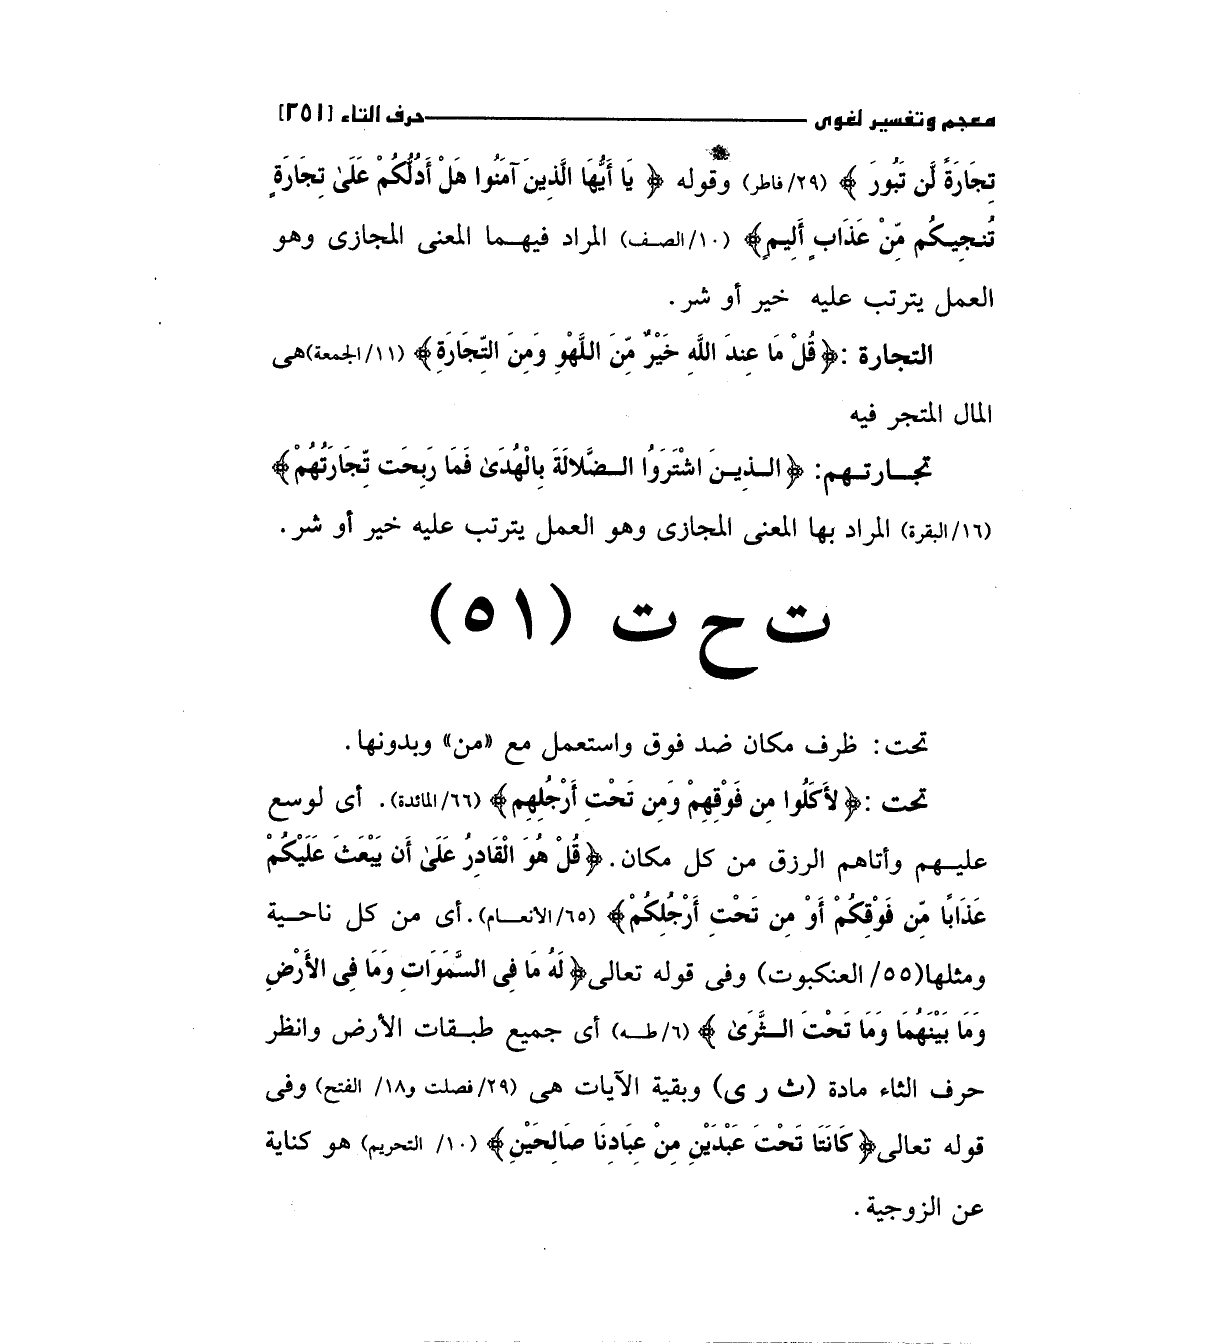 معجم وتفسير لغوى حرف التاء [٣٥١]
تِجَارَةً لَّن تَبُورَ ﴾ (٢٩/ فاطر) وقوله ﴿ يَا أَيُّهَا الَّذِينَ آمَنُوا هَلْ أَدُلُّكُمْ عَلَىٰ تِجَارَةٍ
تُنجِيكُم مِّنْ عَذَابٍ أَلِيمٍ﴾ (١٠/ الصف) المراد فيهما المعنى المجازى وهو
العمل يترتب عليه خير أو شر .
التجارة :﴿قُلْ مَا عِندَ اللَّهِ خَيْرٌ مِّنَ اللَّهْوِ وَمِنَ التِّجَارَةِ﴾ (١١/ الجمعة)هى
المال المتجر فيه
تجارتهم: ﴿الذِينَ اشْتَرَوُا الضَّلالَةَ بِالْهُدَىٰ فَمَا رَبِحَت تِّجَارَتُهُمْ﴾
(١٦/ البقرة) المراد بها المعنى المجازى وهو العمل يترتب عليه خير أو شر .
ت ح ت (٥١)
تحت: ظرف مكان ضد فوق واستعمل مع «من» وبدونها .
تحت :﴿لأَكَلُوا مِن فَوْقِهِمْ وَمِن تَحْتِ أَرْجُلِهِم﴾ (٦٦/ المائدة). أى لوسع
عليهم وأتاهم الرزق من كل مكان . ﴿قُلْ هُوَ الْقَادِرُ عَلَىٰ أَن يَبْعَثَ عَلَيْكُمْ
عَذَابًا مِّن فَوْقِكُمْ أَوْ مِن تَحْتِ أَرْجُلِكُمْ﴾ (٦٥/ الأنعام) . أى من كل ناحية
ومثلها(٥٥/ العنكبوت) وفى قوله تعالى﴿لَهُ مَا فِى السَّمَوَاتِ وَمَا فِى الأَرْضِ
وَمَا بَيْنَهُمَا وَمَا تَحْتَ الثَّرَىٰ ﴾ (٦/ طه) أى جميع طبقات الأرض وانظر
حرف الثاء مادة (ث ر ى) وبقية الآيات هى (٢٩/ فصلت و١٨/ الفتح) وفى
قوله تعالى﴿كَانَتَا تَحْتَ عَبْدَيْنِ مِنْ عِبَادِنَا صَالِحَيْنِ﴾ (١٠/ التحريم) هو كناية
عن الزوجية .